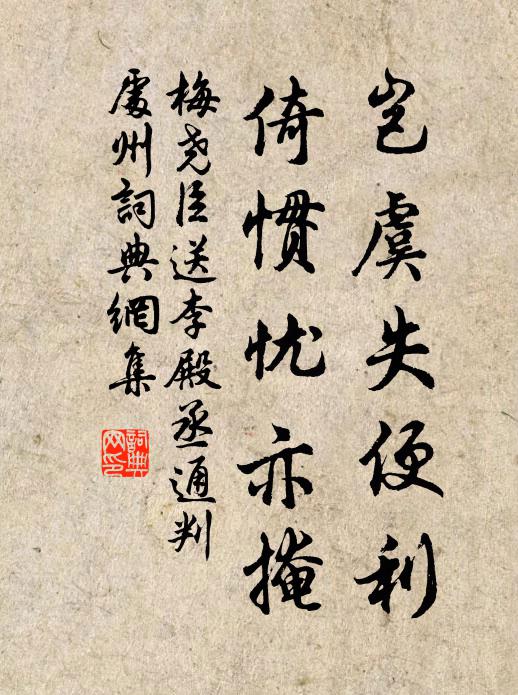 岂虞失便利
倚惯忧亦掩
梅尧臣送李殿丞通判
處州詞典網集
詞典网印